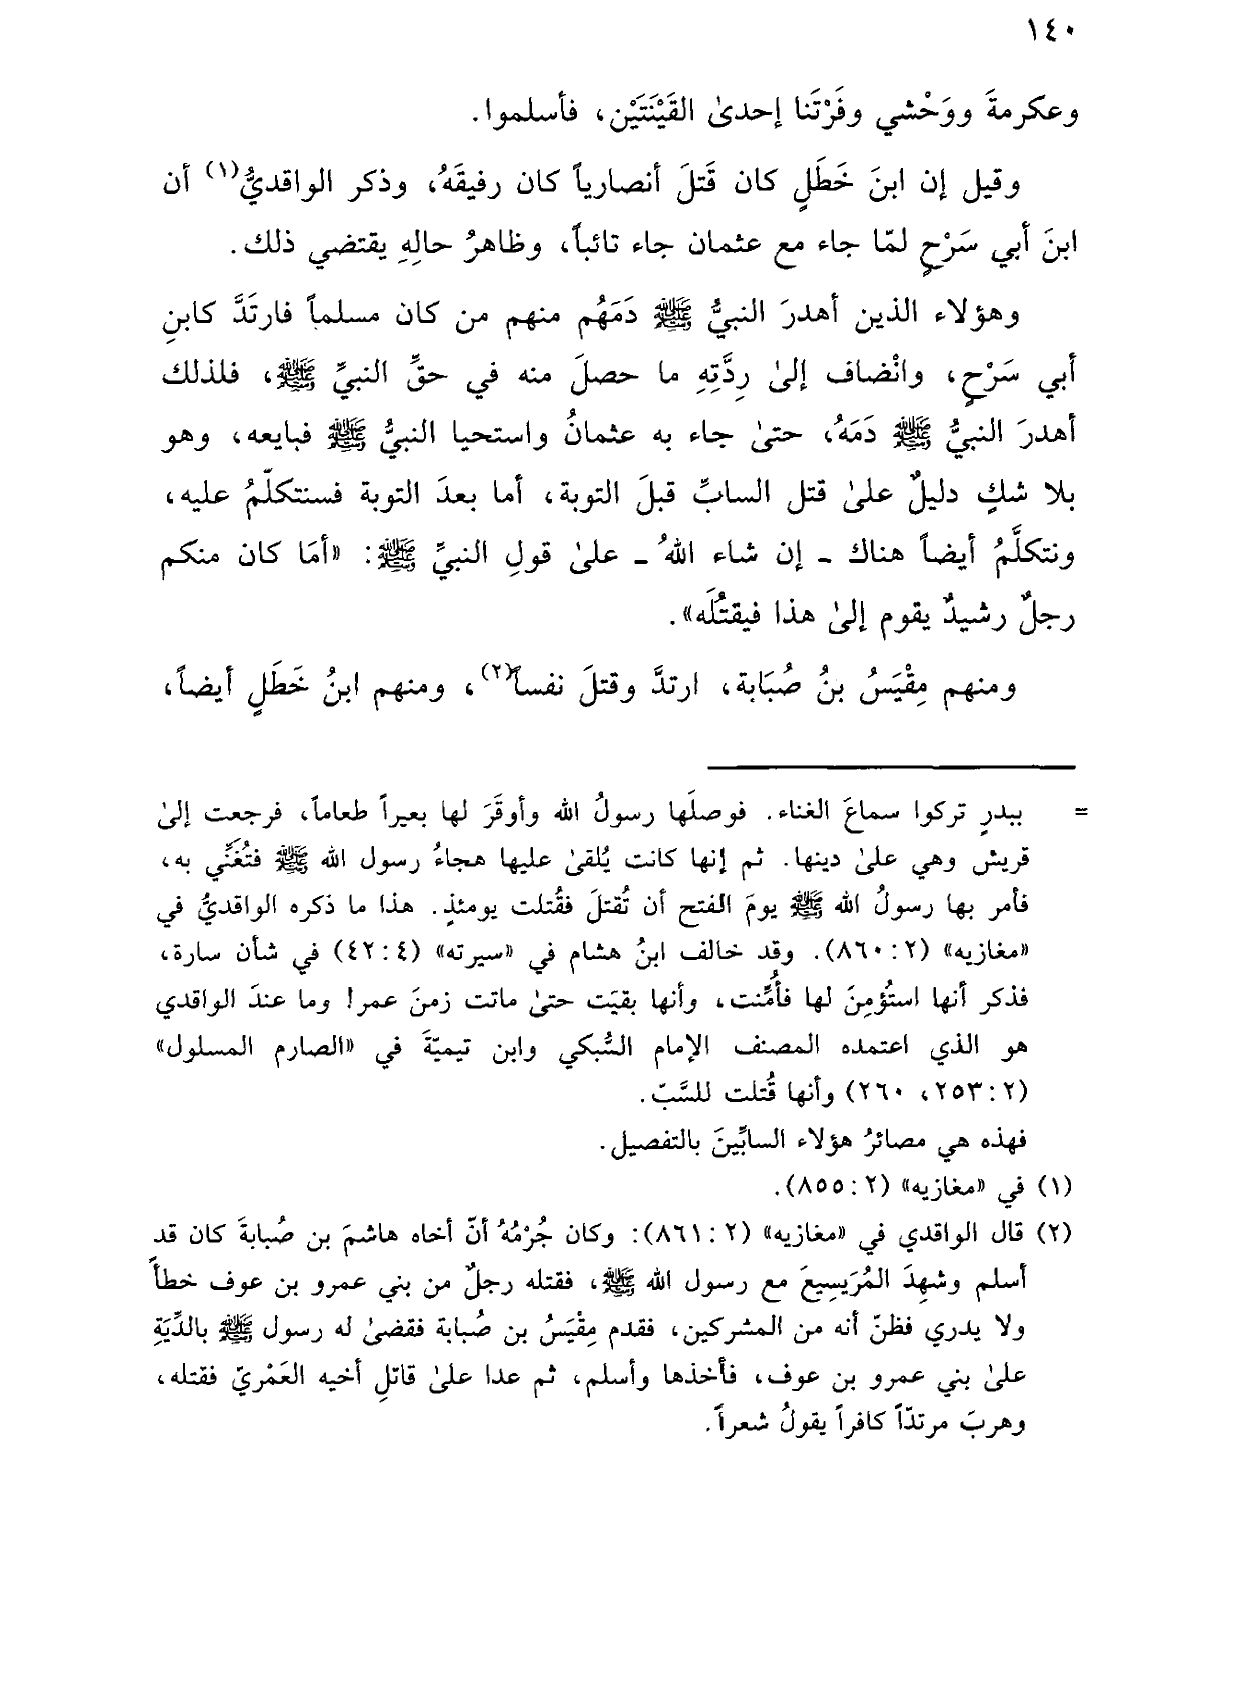 ١٤٠
وعكرمةَ ووَحْشي وفَرْتَنا إحدىٰ القَيْنَتَيْن، فأسلموا.
وقيل إن ابنَ خَطَلٍ كان قَتلَ أنصارياً كان رفيقَهُ، وذكر الواقديُّ(١) أن
ابنَ أبي سَرْحٍ لمّا جاء مع عثمان جاء تائباً، وظاهرُ حالِهِ يقتضي ذلك.
وهؤلاء الذين أهدرَ النبيُّ ﷺ دَمَهُم منهم من كان مسلماً فارتَدَّ كابنِ
أبي سَرْحٍ، وانْضاف إلىٰ رِدَّتِهِ ما حصلَ منه في حقِّ النبيِّ ﷺ، فلذلك
أهدرَ النبيُّ ﷺ دَمَهُ، حتىٰ جاء به عثمانُ واستحيا النبيُّ ﷺ فبايعه، وهو
بلا شكٍ دليلٌ علىٰ قتل السابِّ قبلَ التوبة، أما بعدَ التوبة فسنتكلّمُ عليه،
ونتكلَّمُ أيضاً هناك ـ إن شاء اللهُ ـ علىٰ قولِ النبيِّ ﷺ: «أمَا كان منكم
رجلٌ رشيدٌ يقوم إلىٰ هذا فيقتُلَه».
ومنهم مِقْيَسُ بنُ صُبَابة، ارتدَّ وقتلَ نفساً(٢)، ومنهم ابنُ خَطَلٍ أيضاً،
= ببدرٍ تركوا سماعَ الغناء. فوصلَها رسولُ الله وأوقَرَ لها بعيراً طعاماً، فرجعت إلىٰ
قريش وهي علىٰ دينها. ثم إنها كانت يُلقىٰ عليها هجاءُ رسول الله ﷺ فتُغَنِّي به،
فأمر بها رسولُ الله ﷺ يومَ الفتح أن تُقتلَ فقُتلت يومئذٍ. هذا ما ذكره الواقديُّ في
«مغازيه» (٢: ٨٦٠). وقد خالف ابنُ هشام في «سيرته» (٤: ٤٢) في شأن سارة،
فذكر أنها استُؤمِنَ لها فأُمِّنت، وأنها بقيَت حتىٰ ماتت زمنَ عمر! وما عندَ الواقدي
هو الذي اعتمده المصنف الإمام السُّبكي وابن تيميّةَ في «الصارم المسلول»
(٢: ٢٥٣، ٢٦٠) وأنها قُتلت للسَّبّ.
فهذه هي مصائرُ هؤلاء السابِّينَ بالتفصيل.
(١) في «مغازيه» (٢: ٨٥٥).
(٢) قال الواقدي في «مغازيه» (٢: ٨٦١): وكان جُرْمُهُ أنّ أخاه هاشمَ بن صُبابةَ كان قد
أسلم وشهِدَ المُرَيسِيعَ مع رسول الله ﷺ، فقتله رجلٌ من بني عمرو بن عوف خطأً
ولا يدري فظنّ أنه من المشركين، فقدم مِقْيَسُ بن صُبابة فقضىٰ له رسول ﷺ بالدِّيَةِ
علىٰ بني عمرو بن عوف، فأخذها وأسلم، ثم عدا علىٰ قاتلِ أخيه العَمْريّ فقتله،
وهربَ مرتدّاً كافراً يقولُ شعراً.